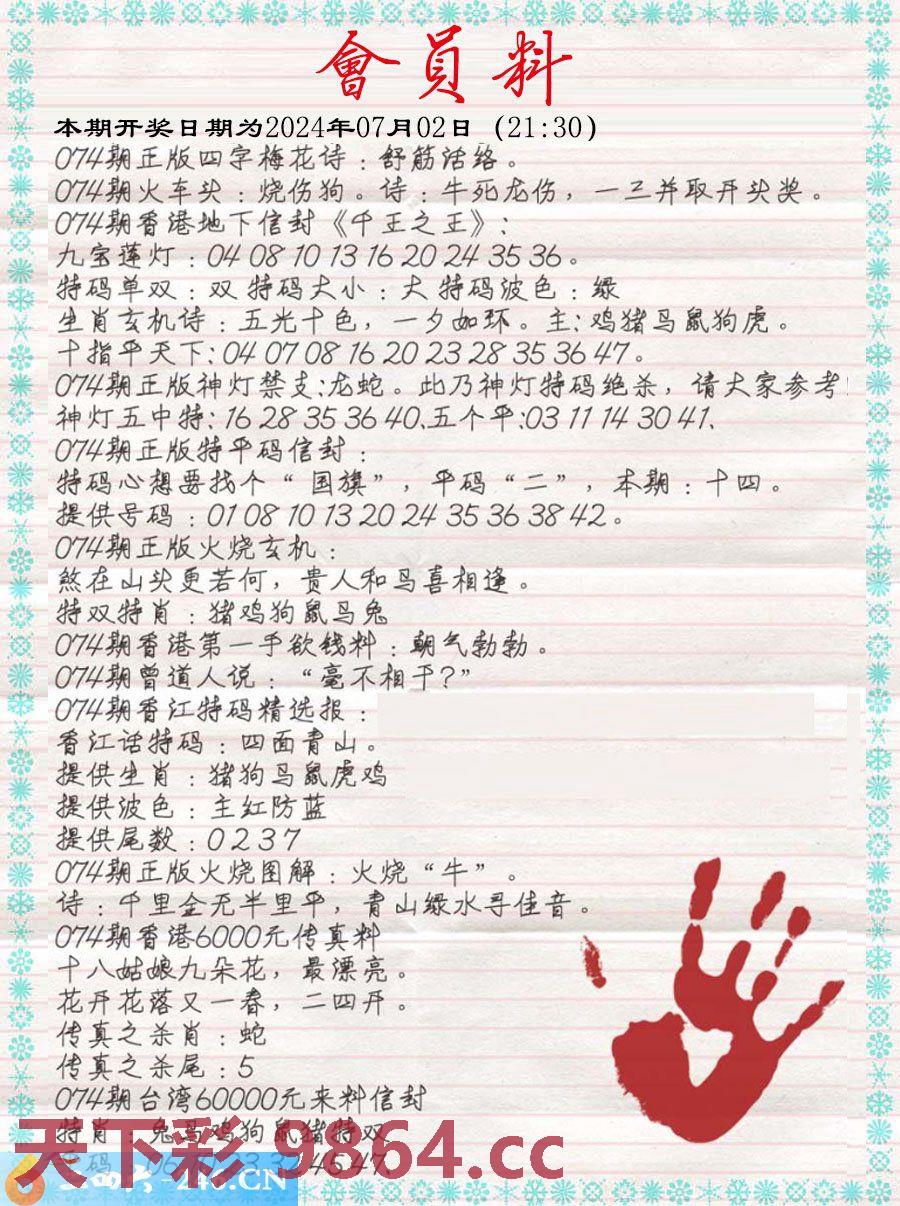 會員料
本期开奖日期为2024年07月02日（21:30）
074期正版四字梅花诗：舒筋活络。
074期火车头：烧伤狗。诗：牛死龙伤，一三并取开头奖。
074期香港地下信封《千王之王》：
九宝莲灯：04 08 10 13 16 20 24 35 36。
特码单双：双 特码大小：大 特码波色：绿
生肖玄机诗：五光十色，一夕如环。主：鸡猪马鼠狗虎。
十指平天下：04 07 08 16 20 23 28 35 36 47。
074期正版神灯禁支：龙蛇。此乃神灯特码绝杀，请大家参考
神灯五中特：16 28 35 36 40.五个平：03 11 14 30 41.
074期正版特平码信封：
特码心想要找个“国旗”，平码“二”，本期：十四。
提供号码：01 08 10 13 20 24 35 36 38 42。
074期正版火烧玄机：
煞在山头更若何，贵人和马喜相逢。
特双特肖：猪鸡狗鼠马兔
074期香港第一手欲钱料：朝气勃勃。
074期曾道人说：“毫不相干？”
074期香江特码精选报：
香江话特码：四面青山。
提供生肖：猪狗马鼠虎鸡
提供波色：主红防蓝
提供尾数：0 2 3 7
074期正版火烧图解：火烧“牛”。
诗：千里金无半里平，青山绿水寻佳音。
074期香港6000元传真料
十八姑娘九朵花，最漂亮。
花开花落又一春，二四开。
传真之杀肖：蛇
传真之杀尾：5
074期台湾60000元来料信封
特肖：兔马鸡狗鼠猪特双
天下彩 9864.cc
45 47.
-246.CN